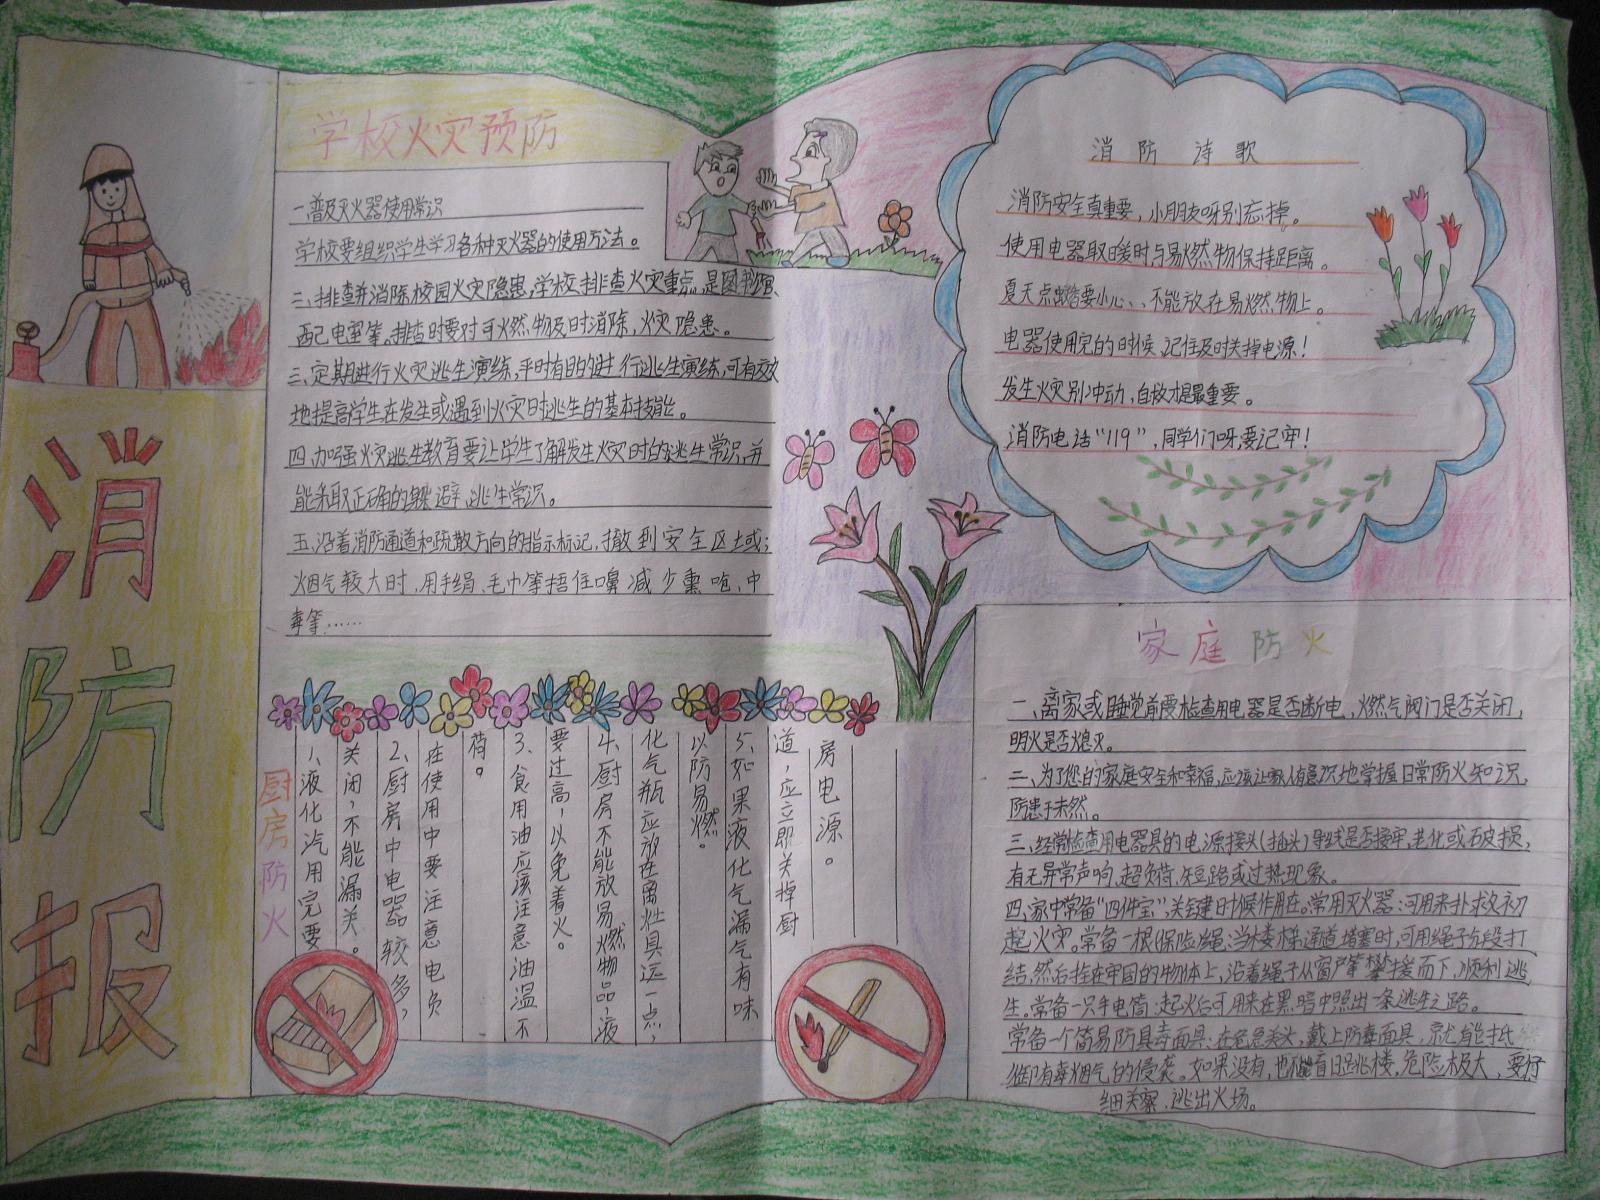 消防报
学校火灾预防
一.普及灭火器使用常识
学校要组织学生学习各种灭火器的使用方法。
二、排查并消除校园火灾隐患,学校排查火灾重点是图书馆、
配电室等。排查时要对可燃物及时消除,火灾隐患。
三、定期进行火灾逃生演练,平时有目的进行逃生演练,可有效
地提高学生在发生或遇到火灾时逃生的基本技能。
四.加强火灾逃生教育要让学生了解发生火灾时的逃生常识,并
能采取正确的躲避、逃生常识。
五.沿着消防通道和疏散方向的指示标记,撤到安全区域;
烟气较大时,用手绢、毛巾等捂住嘴鼻减少熏呛、中
毒等……
消防诗歌
消防安全真重要,小朋友呀别忘掉。
使用电器取暖时与易燃物保持距离。
夏天点蚊香要小心、、不能放在易燃物上。
电器使用完的时候,记住及时关掉电源!
发生火灾别冲动,自救才是最重要。
消防电话“119”,同学们呀,要记牢!
厨房防火
1、液化汽用完要
关闭,不能漏关。
2、厨房中电器较多,
在使用中要注意电负
荷。
3、食用油应该注意油温不
要过高,以免着火。
4、厨房不能放易燃物品,液
化气瓶应放在离灶具远一点,
以防易燃。
5、如果液化气漏气有味
道,应立即关掉厨
房电源。
家庭防火
一、离家或睡觉前要检查用电器是否断电,燃气阀门是否关闭,
明火是否熄灭。
二、为了您的家庭安全和幸福,应该让家人有意识地掌握日常防火知识,
防患于未然。
三、经常检查用电器具的电源接头(插头)导线是否接牢,老化或破损,
有无异常声响,超负荷、短路或过热现象。
四、家中常备“四件宝”,关键时候作用在。常用灭火器:可用来扑救初
起火灾。常备一根保险绳:当楼梯、通道堵塞时,可用绳子分段打
结,然后拴在牢固的物体上,沿着绳子从窗户攀援而下,顺利逃
生。常备一只手电筒:起火后可用来在黑暗中照出一条逃生之路。
常备一个简易防具毒面具:在危急关头,戴上防毒面具,就能抵
御有毒烟气的侵袭。如果没有,也不能盲目跳楼,危险极大,要仔
细观察,逃出火场。